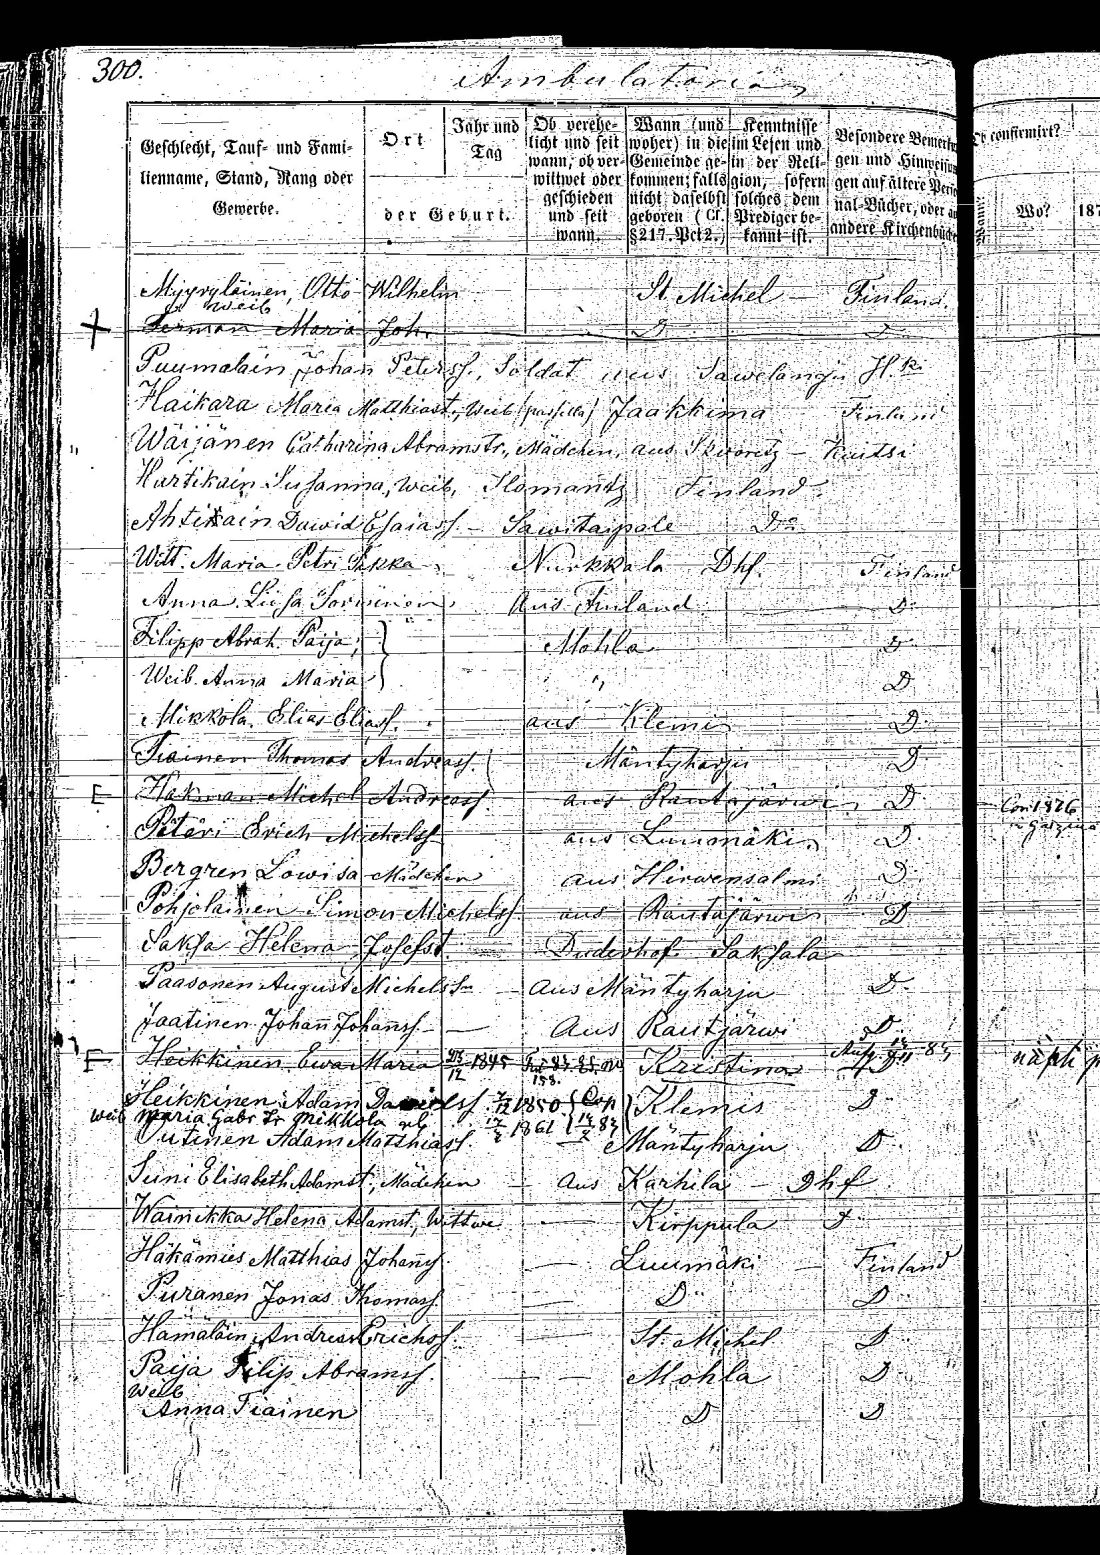 300.
Ambulatoria
Geschlecht, Tauf- und Fami-
lienname, Stand, Rang oder
Gewerbe.
Ort
Jahr und
Tag
der Geburt.
Ob verehe-
licht und seit
wann, ob ver-
wittwet oder
geschieden
und seit
wann.
Wann (und
woher) in die
Gemeinde ge-
kommen; falls
nicht daselbst
geboren (Cf.
§217. Pct 2.)
Kenntnisse
im Lesen und
in der Reli-
gion, sofern
solches dem
Prediger be-
kannt ist.
Besondere Bemerku
gen und Hinweisun
gen auf ältere Perso
nal-Bücher, oder a
andere Kirchenbüch
confirmirt?
Wann?
Wo?
187
Myyryläinen, Otto Wilhelm St Michel — Finland
weib
Maria Joh. D D
Puumalain Johan Peterss., Soldat aus
Haikara Maria Matthiast., Weib Jaakkima Finland
Wäijänen Catharina Abramstr., Mädchen, aus Skworitz —
Hartikain Susanna, Weib, Ilomantz Finland.
Ahtikain Dawid Esaiass. — Sawitaipale Do
Witt. Maria Petri Nurkkala Dhf. Finland
Anna Liisa aus Finland D
Filipp Abrah. Paija, } Mohla D
Weib Anna Maria } " D
Mikkola Elias Eliass. aus Klemis D
Tiainen Thomas Andreass. Mäntyharju D
Hakman Michel Andreass. aus Rautajärwi D
Con 1876
Pätäri Erich Michelss. aus Luumäki D
Bergren Lowisa Mädchen aus Hirwensalmi D
Pohjolainen Simon Michelss. aus Rautajärwi D
Saksa Helena Josefst. Duderhof Saksala
Paasonen August Michelss. — aus Mäntyharju D
Jaatinen Johan Johanss. — Aus Rautjärwi D
Heikkinen, Ewa Maria 1845 Kristina
Heikkinen Adam 1850 Cop Klemis D
weib Maria Gabr. Tr Mikkola 1861
Adam Matthiass. Mäntyharju D
Suni Elisabeth Adamst., Mädchen — Aus Karhila — Dhf
Wainikka Helena Adamst., Wittwe — Kirppula D
Häkämies Matthias Johanss. — Luumäki — Finland
Puranen Jonas Thomass. — D D
Hämäläin Andreas Erichss. — St. Michel D
Paija Filip Abramss. — Mohla D
Weib
Anna Tiainen D D